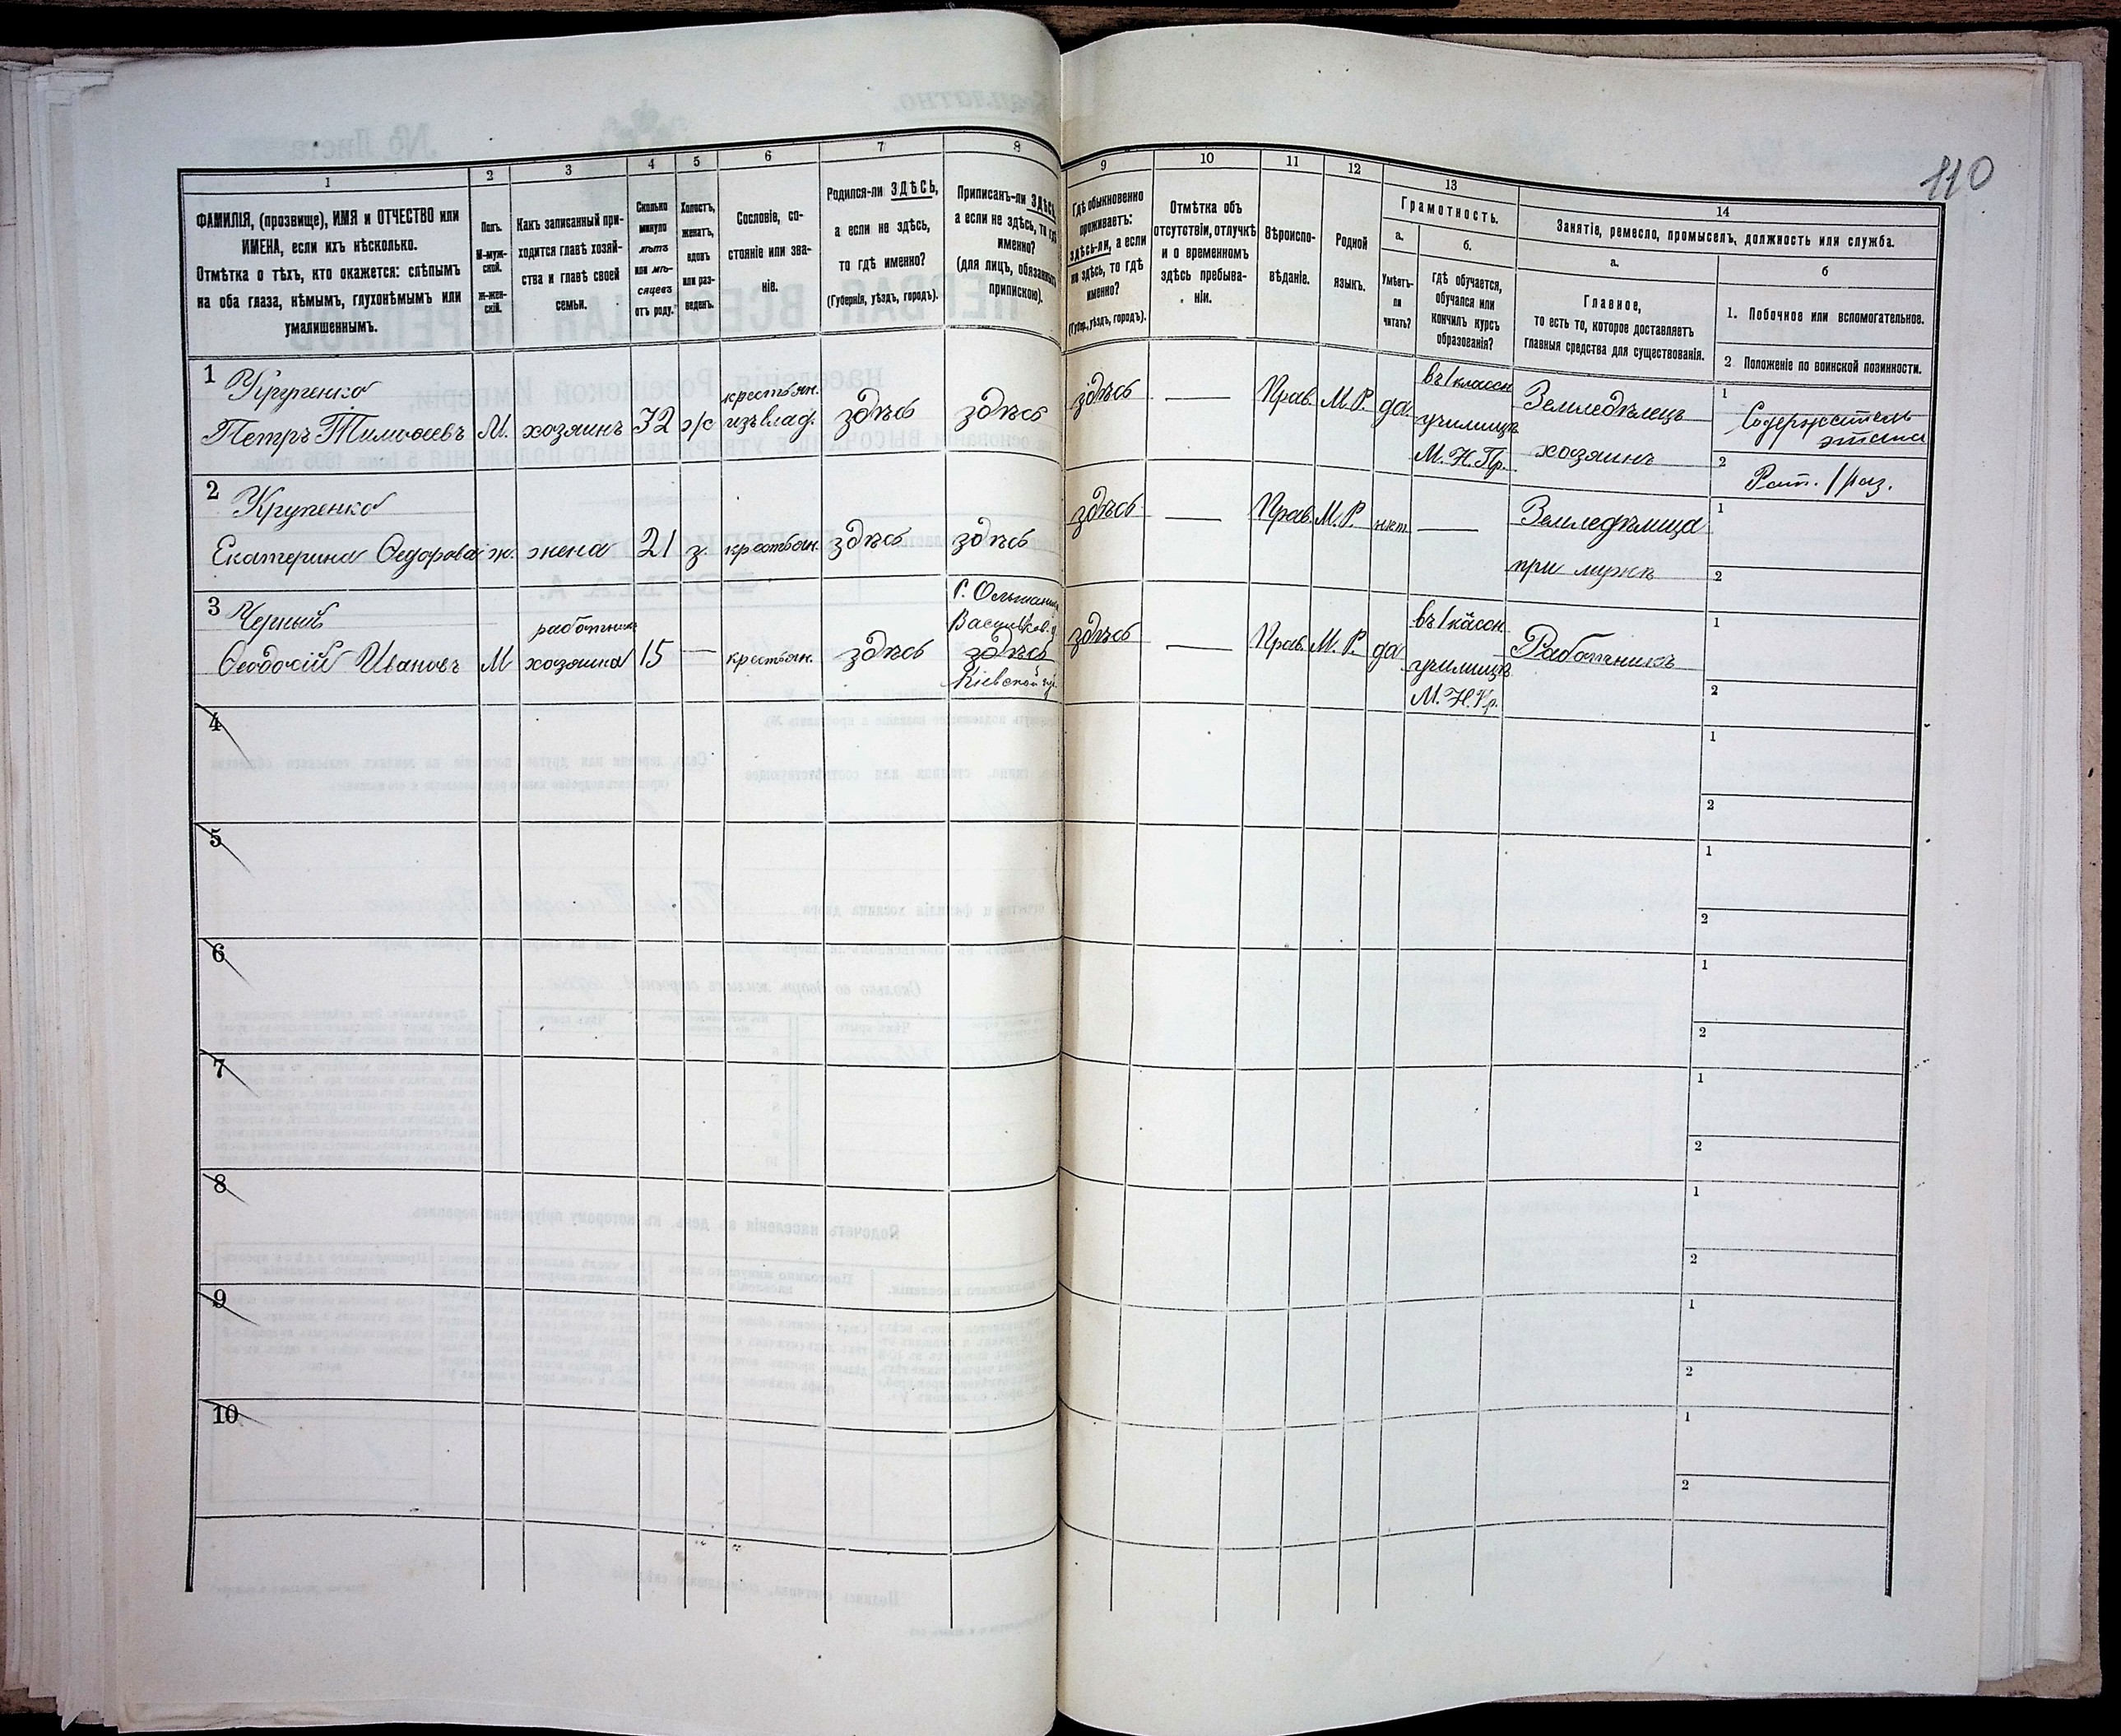 110
1
ФАМИЛІЯ, (прозвище), ИМЯ и ОТЧЕСТВО или
ИМЕНА, если ихъ нѣсколько.
Отмѣтка о тѣхъ, кто окажется: слѣпымъ
на оба глаза, нѣмымъ, глухонѣмымъ или
умалишеннымъ.
2
Полъ.
М-муж-
ской.
Ж-жен-
скій.
3
Какъ записанный при-
ходится главѣ хозяй-
ства и главѣ своей
семьи.
4
Сколько
минуло
лѣтъ
или мѣ-
сяцевъ
отъ роду.
5
Холостъ,
женатъ,
вдовъ
или раз-
веденъ.
6
Сословіе, со-
стояніе или зва-
ніе.
7
Родился-ли ЗДѢСЬ,
а если не здѣсь,
то гдѣ именно?
(Губернія, уѣздъ, городъ).
8
Приписанъ-ли ЗДѢСЬ,
а если не здѣсь, то гдѣ
именно?
(для лицъ, обязанныхъ
припискою).
9
Гдѣ обыкновенно
проживаетъ:
здѣсь-ли, а если
не здѣсь, то гдѣ
именно?
(Губер., уѣздъ, городъ).
10
Отмѣтка объ
отсутствіи, отлучкѣ
и о временномъ
здѣсь пребыва-
ніи.
11
Вѣроиспо-
вѣданіе.
12
Родной
языкъ.
13
Грамотность.
а.
Умѣетъ-
ли
читать?
б.
Гдѣ обучается,
обучался или
кончилъ курсъ
образованія?
14
Занятіе, ремесло, промыселъ, должность или служба.
а.
Главное,
то есть то, которое доставляетъ
главныя средства для существованія.
б
1. Побочное или вспомогательное.
2 Положеніе по воинской повинности.
1
Крупенко
Петръ Тимоѳеевъ
М.
хозяинъ
32
ж
крестьян.
изъ влад.
здѣсь
здѣсь
здѣсь
—
Прав.
М. Р.
да
въ 1 классн
училищѣ
М. Н. Пр.
Земледѣлецъ
хозяинъ
1
Содержатель
этапа
2
Рат. 1 раз.
2
Крупенко
Екатерина Ѳедорова
ж.
жена
21
з.
крестьян.
здѣсь
здѣсь
здѣсь
—
Прав.
М. Р.
нѣт
—
Земледѣлица
при мужѣ
1
2
3
Черный
Ѳеодосій Ивановъ
М
работник
хозяина
15
—
крестьян.
здѣсь
Васильков. у.
здѣсь
Кіевской губ.
здѣсь
—
Прав.
М. Р.
да
въ 1 классн.
училищѣ
М. Н. Пр.
Работникъ
1
2
4
1
2
5
1
2
6
1
2
7
1
2
8
1
2
9
1
2
10
1
2